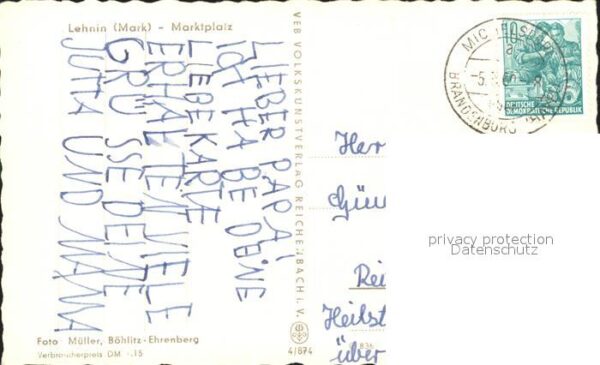 Lehnin (Mark) - Marktplatz
LIEBER PAPA!
ICH HABE DEINE
LIEBE KARTE
ERHALTEN VIELE
GRÜSSE DEINE
JUTTA UND MAMA
Foto Müller, Böhlitz-Ehrenberg
Verbraucherpreis DM -.15
VEB VOLKSKUNSTVERLAG REICHENBACH i. V.
4/874
836
10
DEUTSCHE
DEMOKRATISCHE REPUBLIK
BRANDENBURG
Her
Gün
Rei
Heilst
über
privacy protection
Datenschutz